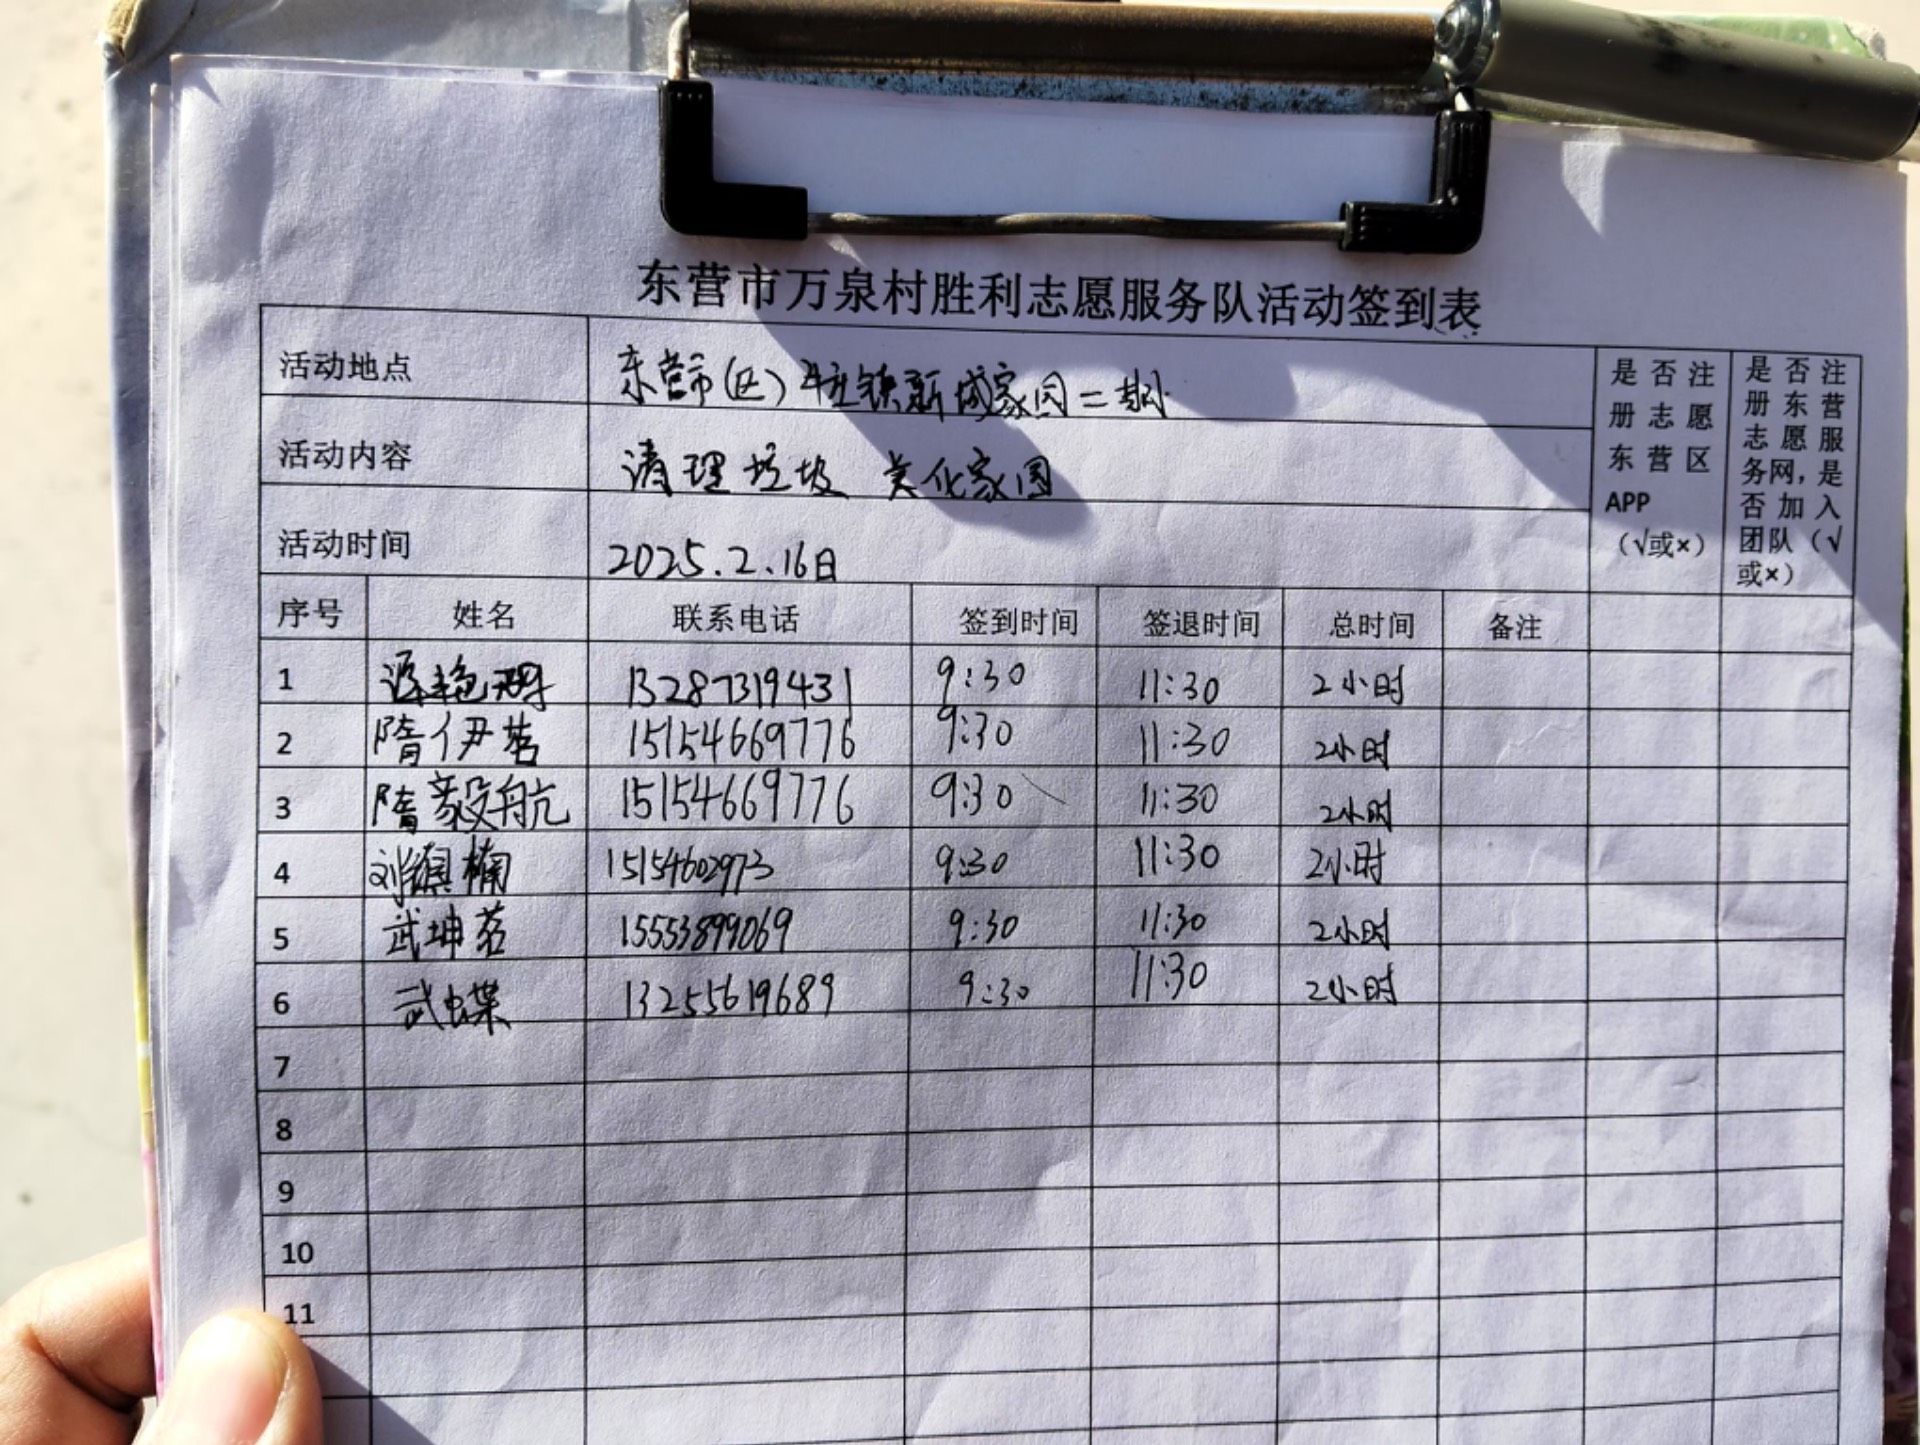 东营市万泉村胜利志愿服务队活动签到表
活动地点 东营市(区)牛庄镇新城家园二期
活动内容 清理垃圾 美化家园
活动时间 2025.2.16日
是否注册志愿东营区APP（√或×）
是否注册东营志愿服务网，是否加入团队（√或×）
序号 姓名 联系电话 签到时间 签退时间 总时间 备注
1 13287319431 9:30 11:30 2小时
2 隋伊茗 15154669776 9:30 11:30 2小时
3 隋毅航 15154669776 9:30 11:30 2小时
4 刘 楠 15154602973 9:30 11:30 2小时
5 武坤茗 15553899069 9:30 11:30 2小时
6 武蝶 13255619689 9:30 11:30 2小时
7
8
9
10
11